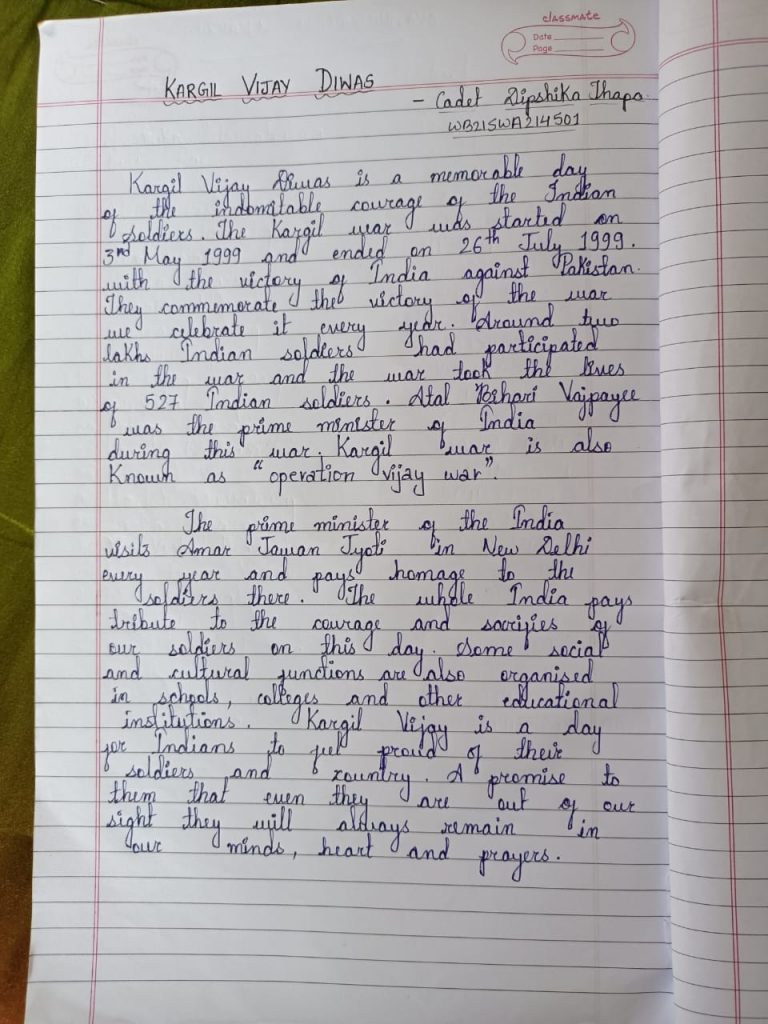 classmate
Date
Page
KARGIL VIJAY DIWAS
- Cadet Dipshika Thapa
WB21SWA214501
Kargil Vijay Diwas is a memorable day
of the indomitable courage of the Indian
soldiers. The Kargil war was started on
3rd May 1999 and ended on 26th July 1999.
with the victory of India against Pakistan.
They commemorate the victory of the war
we celebrate it every year. Around two
lakhs Indian soldiers had participated
in the war and the war took the lives
of 527 Indian soldiers. Atal Bihari Vajpayee
was the prime minister of India
during this war. Kargil war is also
Known as "operation vijay war".
The prime minister of the India
visits Amar Jawan Jyoti in New Delhi
every year and pays homage to the
soldiers there. The whole India pays
tribute to the courage and sacrifies of
our soldiers on this day. Some social
and cultural functions are also organised
in schools, colleges and other educational
institutions. Kargil Vijay is a day
for Indians to feel proud of their
soldiers and country. A promise to
them that even they are out of our
sight they will always remain in
our minds, heart and prayers.